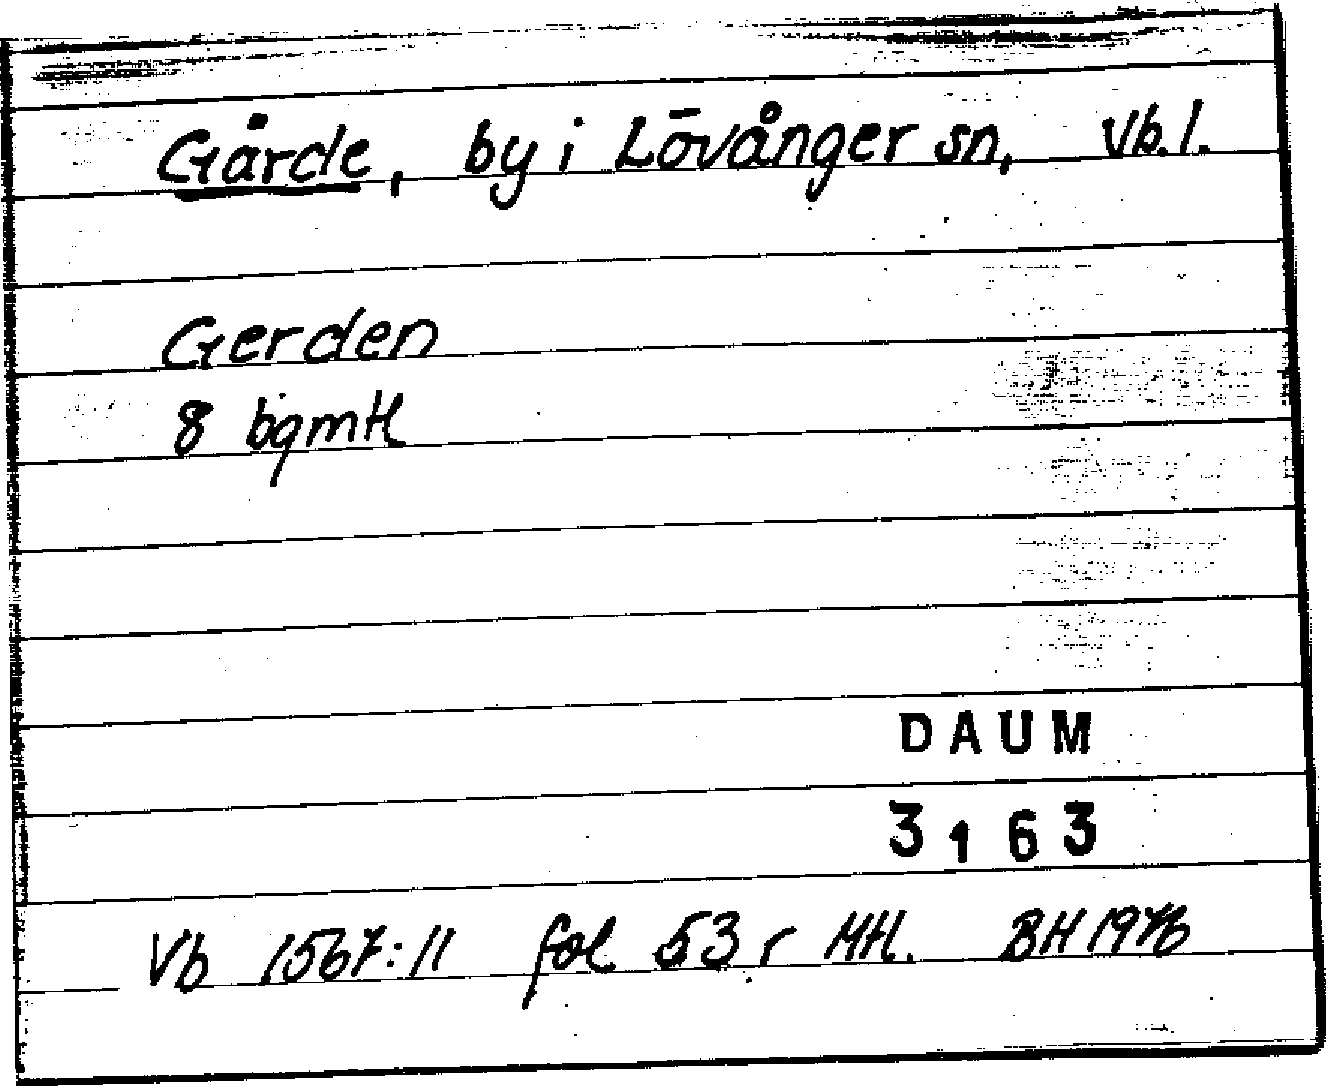 Gärde, by i Lövånger sn, Vb. l.
Gerden
8 bgmtl
DAUM
3163
Vb 1567:11 fol 53 r MtL. BH 1976